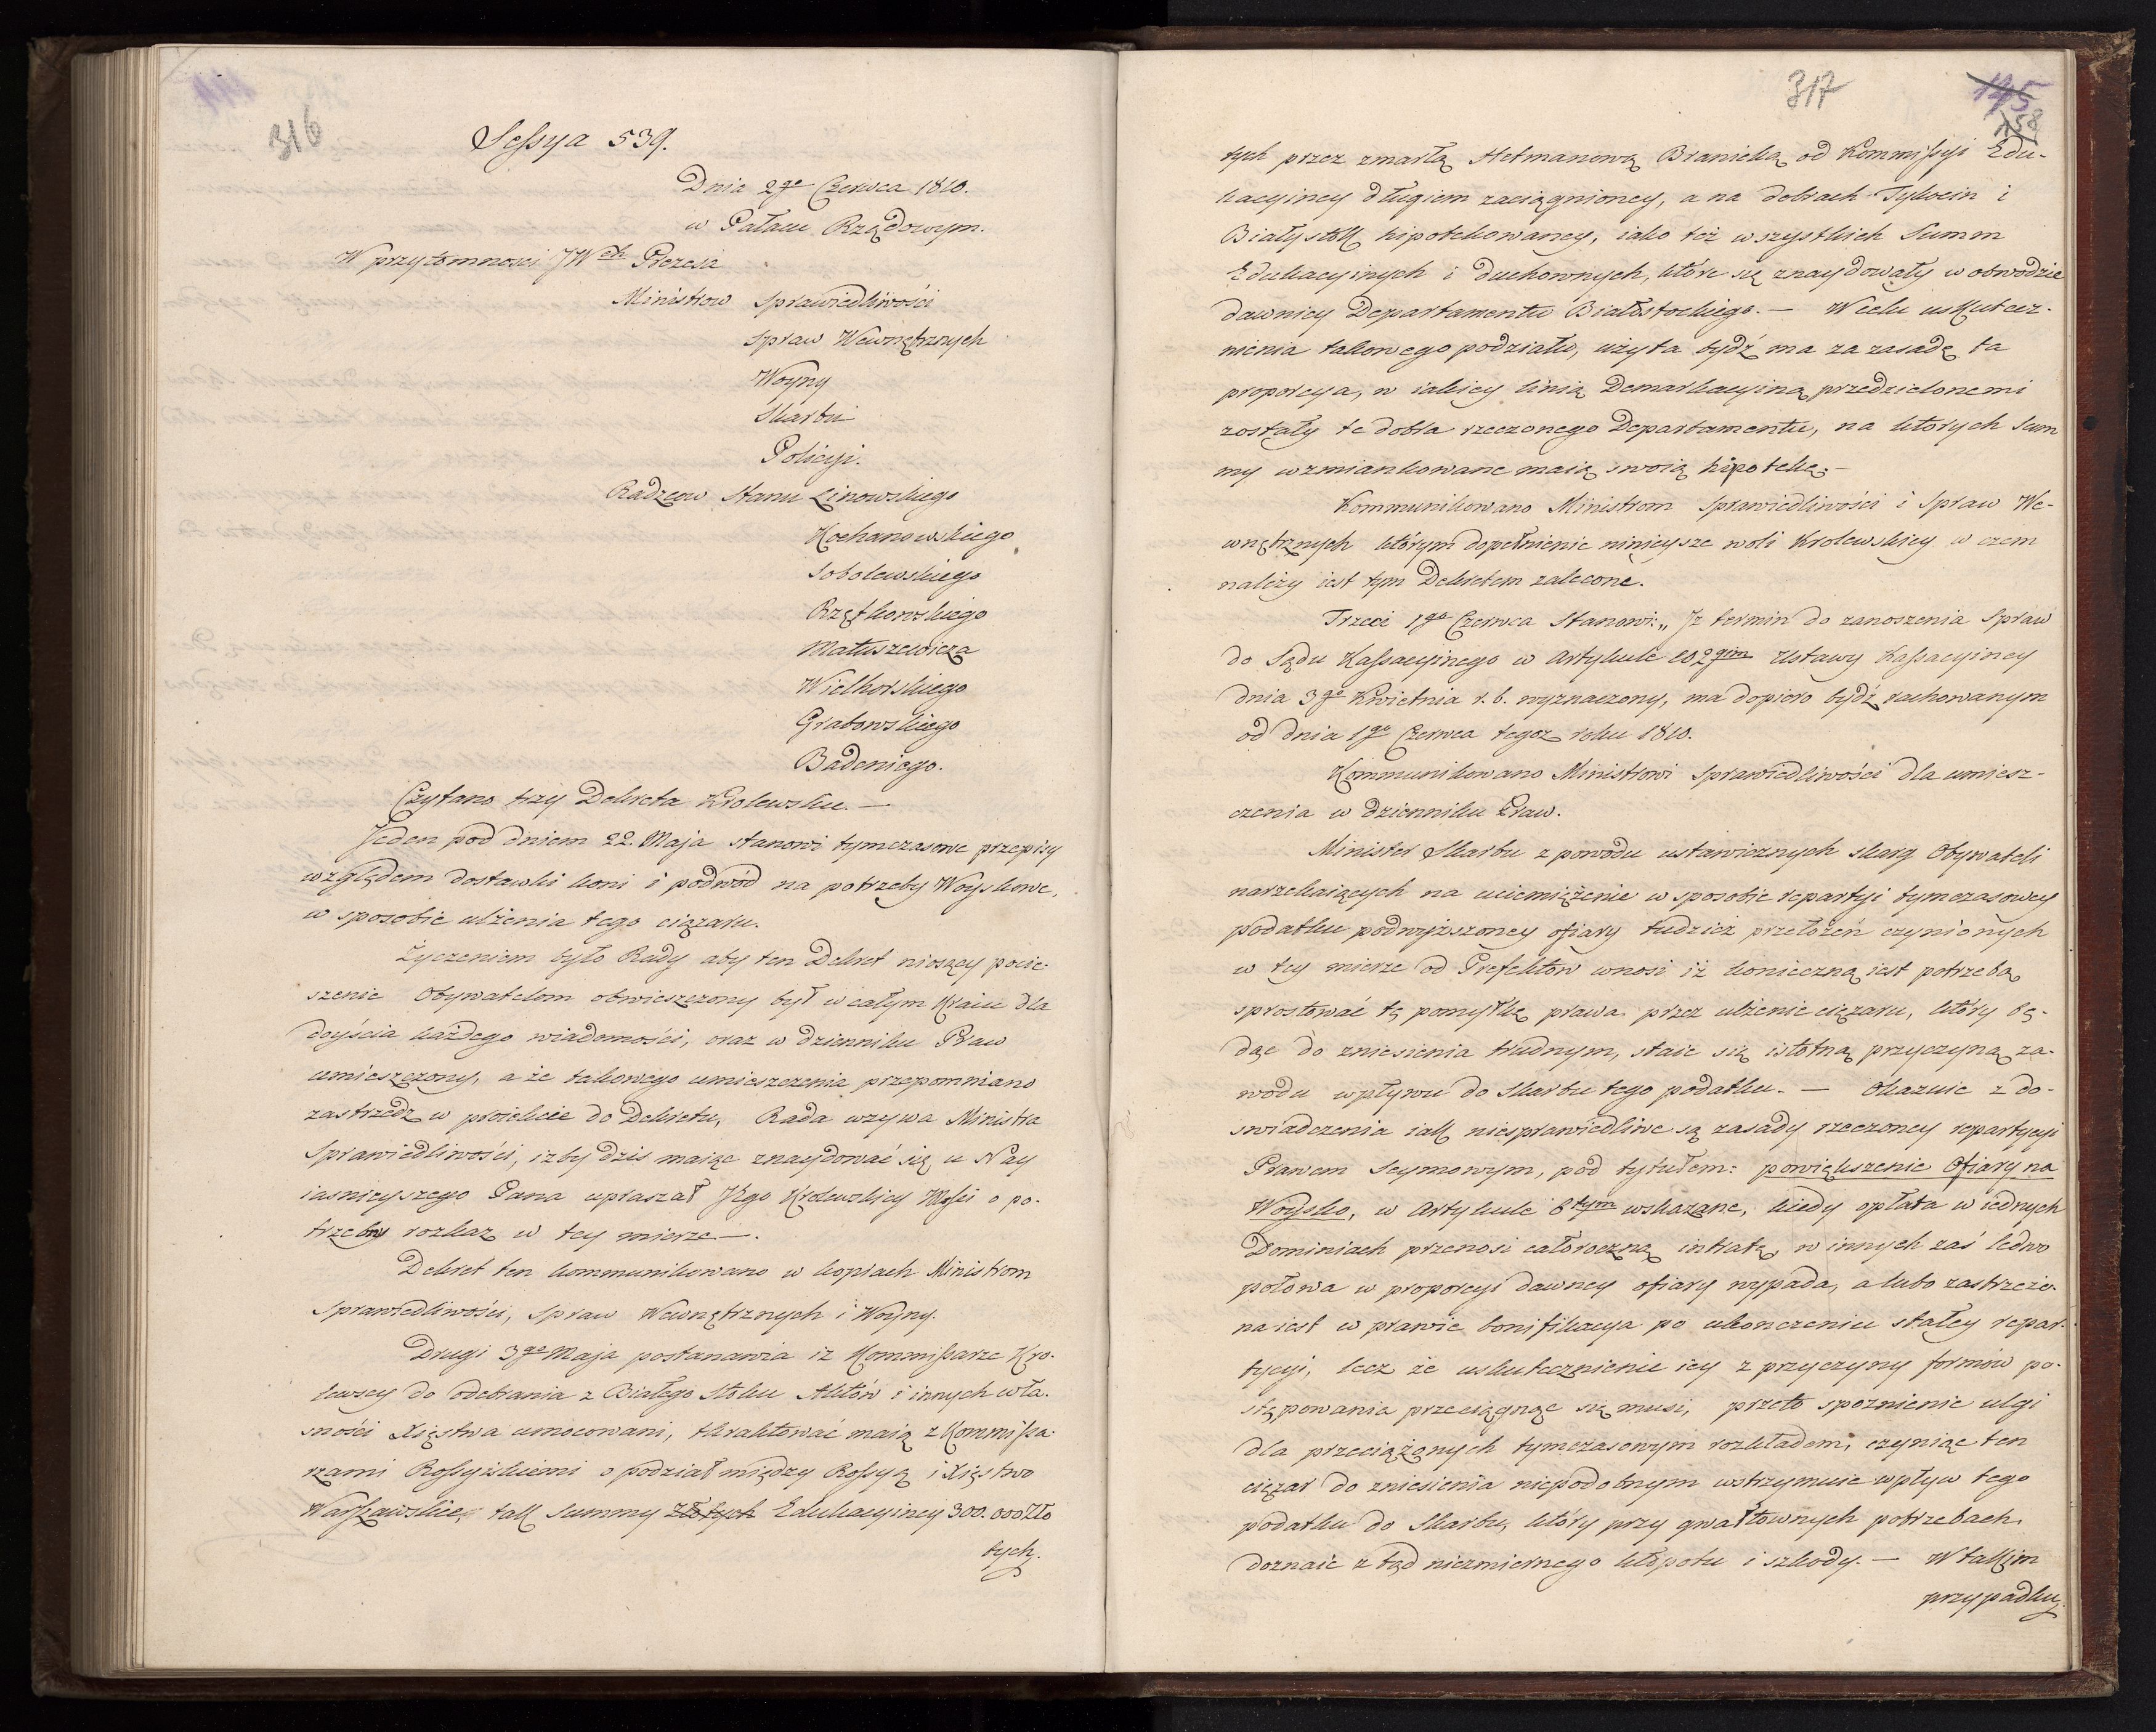 316
Sessya 539.
Dnia 2go Czerwca 1810.
w Pałacu Rządowym.
W przytomnosci JWch Prezesa
Ministrow Sprawiedliwości
Spraw Wewnętrznych
Woyny
Skarbu
Policyi.
Radzcow Stanu Linowskiego
Kochanowskiego
Sobolewskiego
Rzętkowskiego
Matuszewicza
Wielhorskiego
Grabowskiego
Badeniego.
Czytano trzy Dekreta Krolewskie. —
Jeden pod dniem 22. Maja stanowi tymczasowe przepisy
względem dostawki koni i podwód na potrzeby Woyskowe,
w sposobie ulżenia tego ciężaru.
Życzeniem było Rady aby ten Dekret niosący pocie-
szenie Obywatelom obwieszczony był w całym Kraiu dla
doyścia każdego wiadomości, oraz w dzienniku Praw
umieszczony, a że takowego umieszczenia przepomniano
zastrzedz w proiekcie do Dekretu, Rada wzywa Ministra
Sprawiedliwości, izby dzis maiąc znaydować się u Nay
iasnieyszego Pana upraszał Jego Krolewskiey Mości o po-
trzebny rozkaz w tey mierze —.
Dekret ten kommunikowano w kopiach Ministrom
Sprawiedliwości, Spraw Wewnętrznych i Woyny.
Drugi 3go Maja postanawia iz Kommissarze Kro-
lewscy do odebrania z Białego Stoku Aktów i innych wła-
sności Xięstwa umocowani, traktować maią z Kommissa-
rzami Rossyiskiemi o podział między Rossyą i Xięstwo
Warszawskie, tak Summy Złotych Edukacyiney 300.000 Zło
tych.
317
145
158
tych przez zmarłą Hetmanową Branicką od Kommissyi Edu-
kacyiney długiem zaciągnioney, a na dobrach Tykocin i
Białystok hipotekowaney, iako też wszystkich Summ
Edukacyinych i duchownych, które się znaydowały w obwodzie
dawniey Departamentu Białostockiego. — W celu uskutecz-
nienia takowego podziału, użyta bydź ma za zasadę ta
proporcya, w iakiey linią Demarkacyiną przedzielonemi
zostały te dobra rzeczonego Departamentu, na których Sum
my wzmiankowane maią swoią hipotekę. —
Kommunikowano Ministrom Sprawiedliwości i Spraw We-
wnętrznych którym dopełnienie ninieysze woli Krolewskiey w czem
należy iest tym Dekretem zalecone.
Trzeci 1go Czerwca Stanowi: „ Iz termin do zanoszenia Spraw
do Sądu Kassacyinego w Artykule 102gim Ustawy Kassacyiney
dnia 3go Kwietnia r. b. wyznaczony, ma dopiero bydź rachowanym
od dnia 1go Czerwca tegoz roku 1810.
Kommunikowano Ministrowi Sprawiedliwości dla umiesz-
czenia w dzienniku Praw.
Minister Skarbu z powodu ustawicznych skarg Obywateli
narzekaiących na uciemiężenie w sposobie repartyi tymczasowey
podatku podwyższoney ofiary tudzież przełożeń czynionych
w tey mierze od Prefektow wnosi iż konieczną iest potrzebą
sprostować tę pomyłkę prawa przez ulżenie ciężaru, który bę-
dąc do zniesienia trudnym, staie się istotną przyczyną za-
wodu wpływu do Skarbu tego podatku. — Okazuie z do-
swiadczenia iak niesprawiedliwe są zasady rzeczoney repartycyi
Prawem Seymowym, pod tytułem: powiększenie Ofiary na
Woysko, w Artykule 8tym wskazane, kiedy opłata w iednych
Dominiach przenosi całoroczną intratę, w innych zaś ledwo
połowa w proporcyi dawney ofiary wypada, a lubo zastrzeżo-
na iest w prawie bonifikacya po ukonczeniu stałey repar-
tycyi, lecz że uskutecznienie iey z przyczyny formów po-
stępowania przeciągnąc się musi, przeto spoznienie ulgi
dla przeciążonych tymczasowym rozkładem, czyniąc ten
ciężar do zniesienia niepodobnym wstrzymuie wpływ tego
podatku do Skarbu, który przy gwałtownych potrzebach
doznaie z tąd niezmiernego kłopotu i szkody. — W takim
przypadku